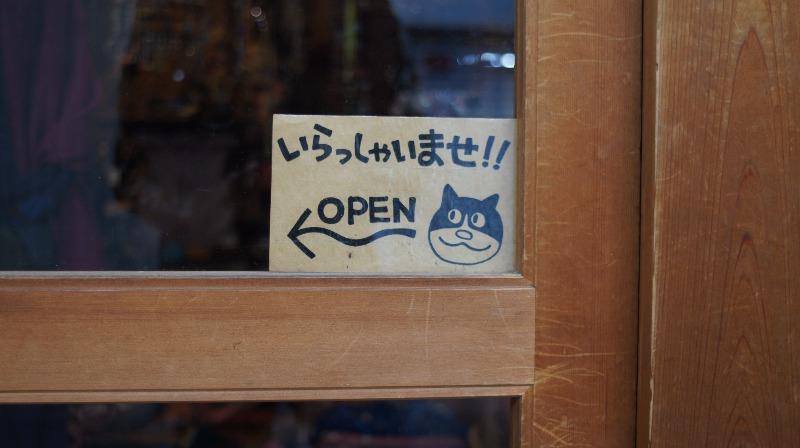 いらっしゃいませ!!
OPEN